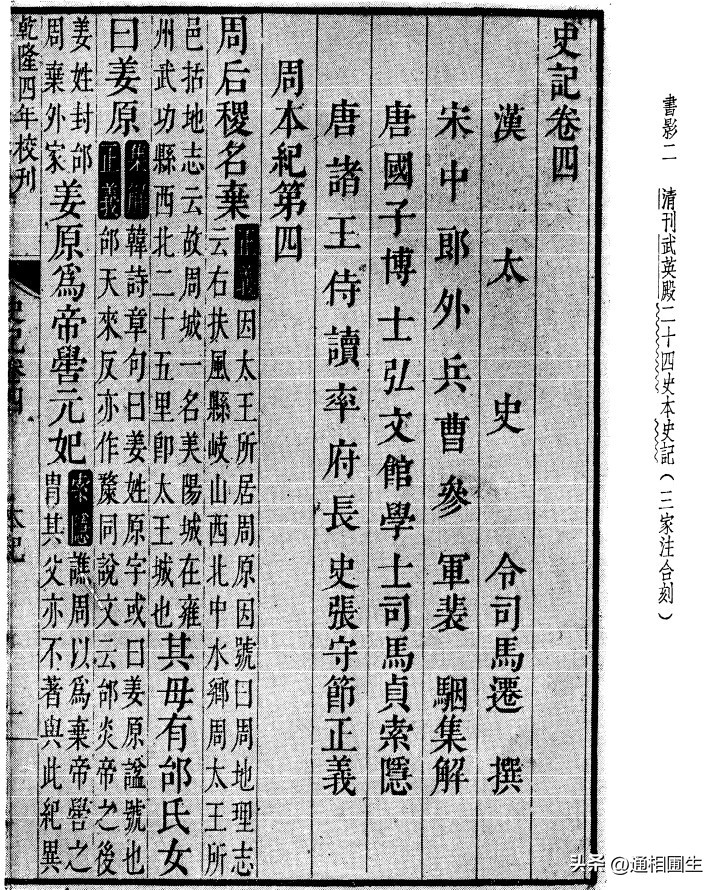 書影二 清刊武英殿二十四史本史記（三家注合刻）
史記卷四
漢太史令司馬遷撰
宋中郎外兵曹參軍裴駰集解
唐國子博士弘文館學士司馬貞索隱
唐諸王侍讀率府長史張守節正義
周本紀第四
周后稷名棄
正義因太王所居周原因號曰周地理志
云右扶風縣岐山西北中水鄉周太王所
邑括地志云故周城一名美陽城在雍
州武功縣西北二十五里卽太王城也
其母有邰氏女
曰姜原
集解韓詩章句曰姜姓原字或曰姜原諡號也
正義邰天來反亦作斄同說文云邰炎帝之後
姜姓封邰
周棄外家
姜原爲帝嚳元妃
索隱譙周以爲棄帝嚳之
冑其父亦不著與此紀異
乾隆四年校刊
史記卷四
本紀
一
头条 @通相圃生